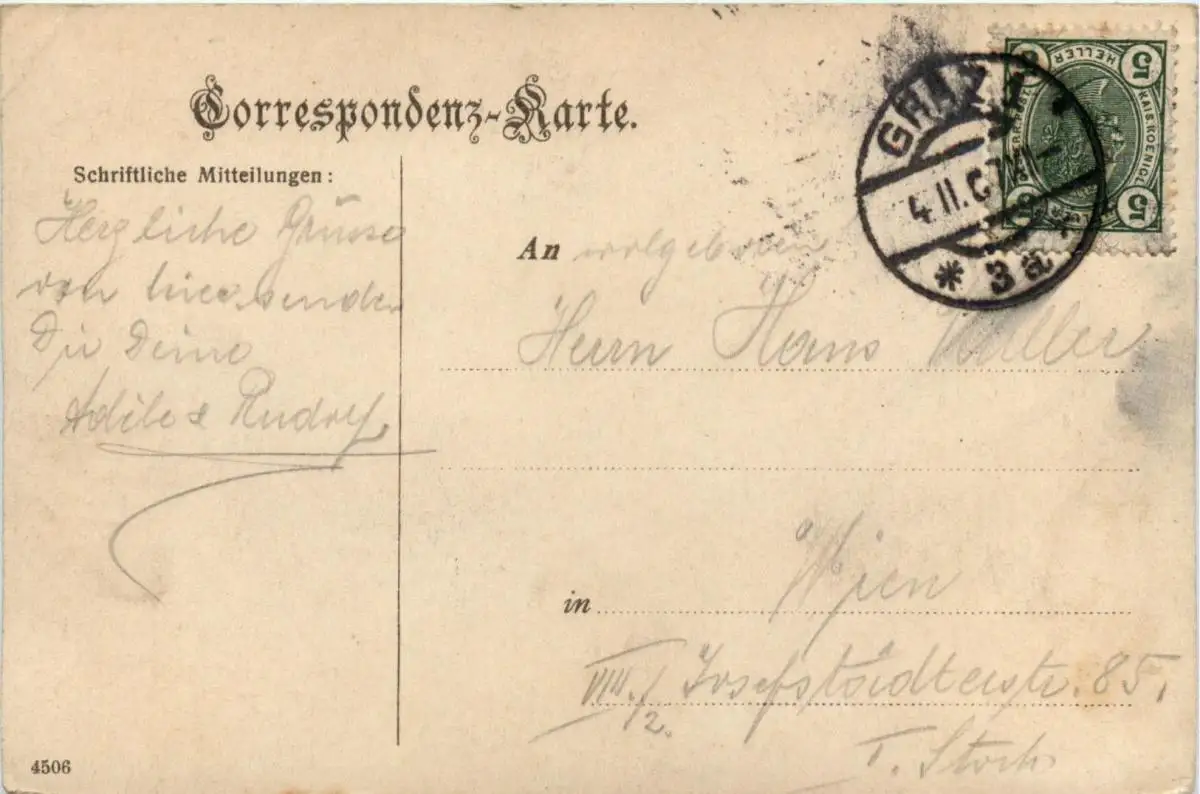 Correspondenz-Karte.
Schriftliche Mitteilungen:
Herzliche Grüsse
von hier senden
Dir Deine
Adele & Rudolf
An wolgeboren
Herrn Hans
in Wien
VIII./2. Josefstädterstr. 85,
I. Stock
4506
GRAZ
4 II. 0
* 3a
5 5
HELLER
KAIS. KOENIGL.
5